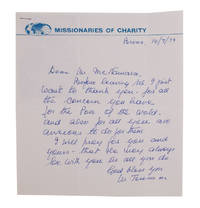 MISSIONARIES OF CHARITY
14/7/74
Dear Mr. McNamara,
Before leaving I just
want to thank you for all
the concern you have
for the Poor of the world.
and also for all you are
anxious to do for them
I will pray for you and
yours - that He may always
be with you in all you do
God bless you